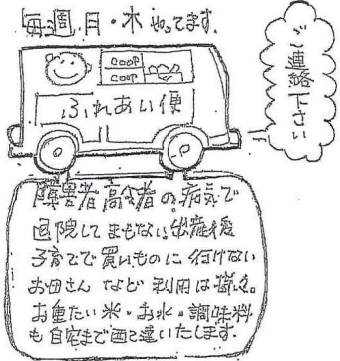 毎週 月・木 やってます。
ご連絡下さい
coop
coop
ふれあい便
障害者 高令者 の 病気で
退院して まもない 出産後
子育てで 買いものに 行けない
お母さん など 利用は
お重たい 米・お水・調味料
も 自宅まで いたします。